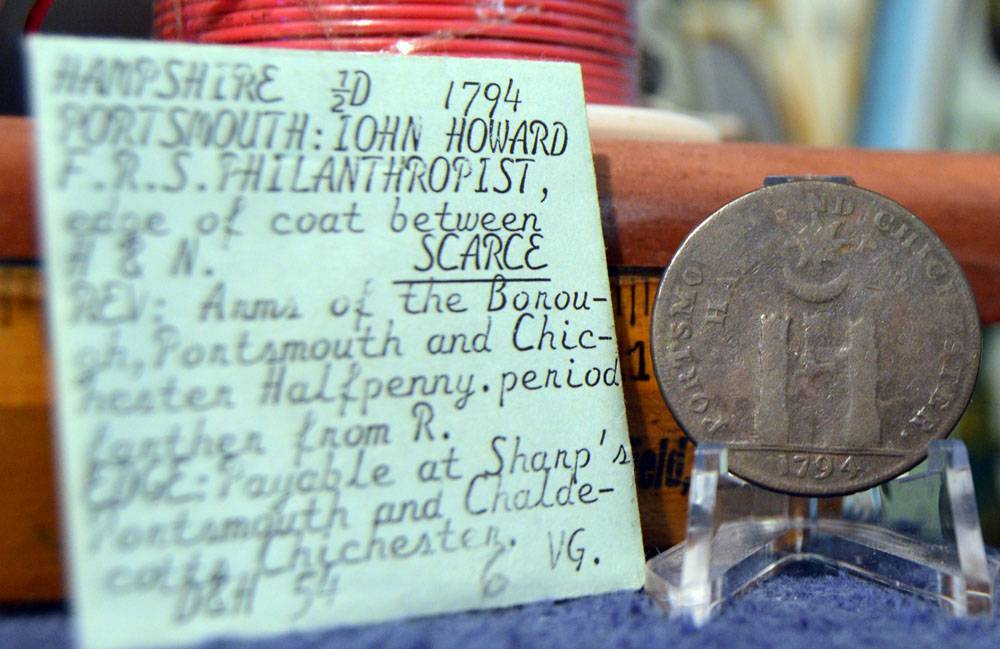 HAMPSHIRE ½D 1794
PORTSMOUTH: IOHN HOWARD
F.R.S. PHILANTHROPIST,
edge of coat between
H & N. SCARCE
REV: Arms of the Borou-
gh, Portsmouth and Chic-
hester Halfpenny. period
farther from R.
EDGE: Payable at Sharp's
Portsmouth and Chalde-
cotts Chichester.
D&H 54 6 VG.
PORTSMO ND CHICHESTER.
HA
1794
1
ield,